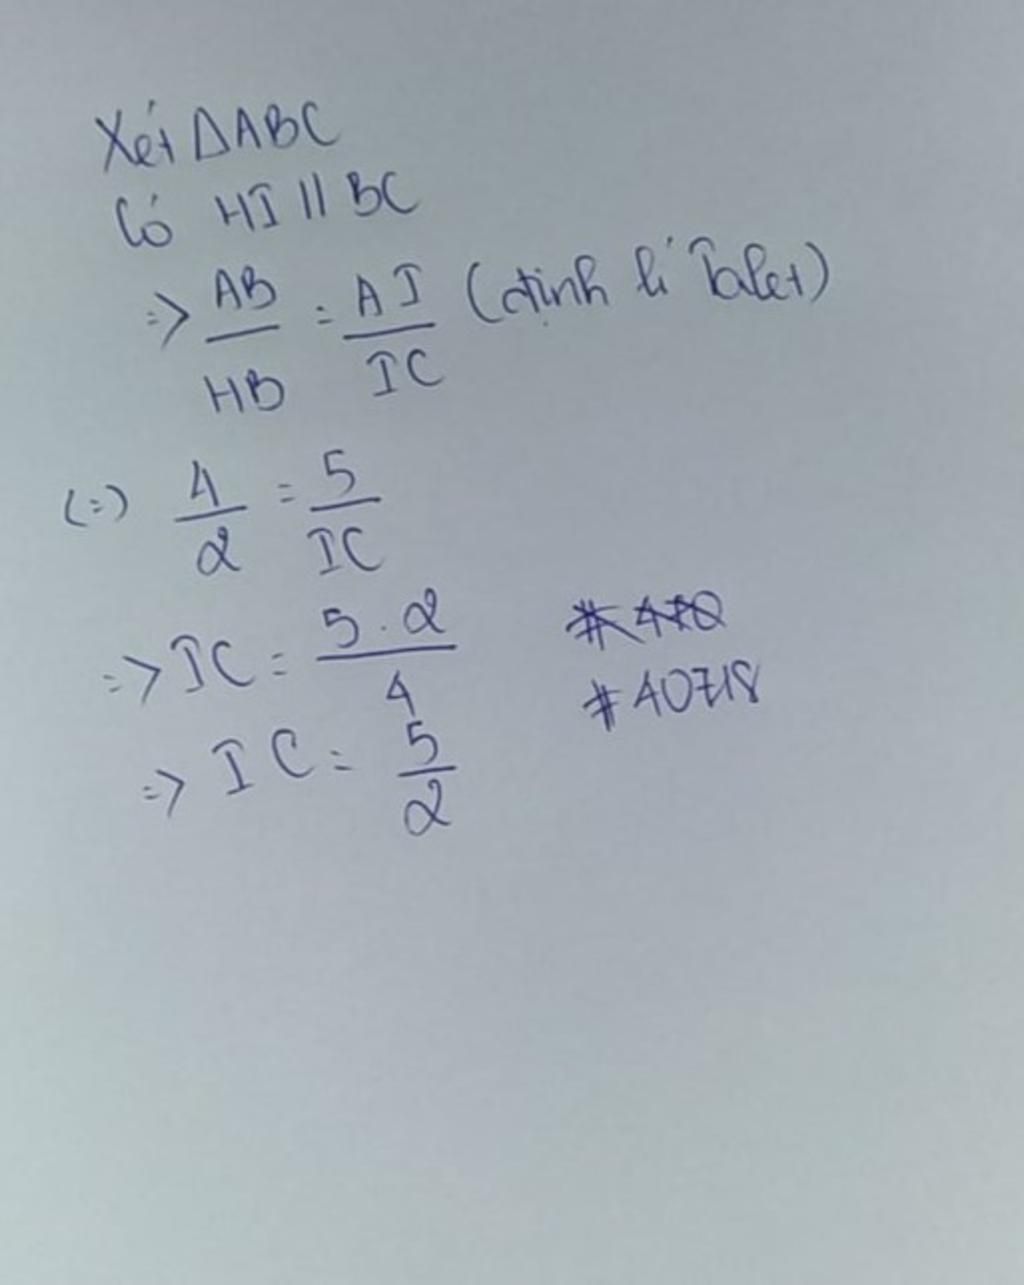 Xét ΔABC
Có HI // BC
=> AB/HB = AI/IC (định lí Talet)
(=) 4/2 = 5/IC
=> IC = 5.2/4
#40718
=> IC = 5/2